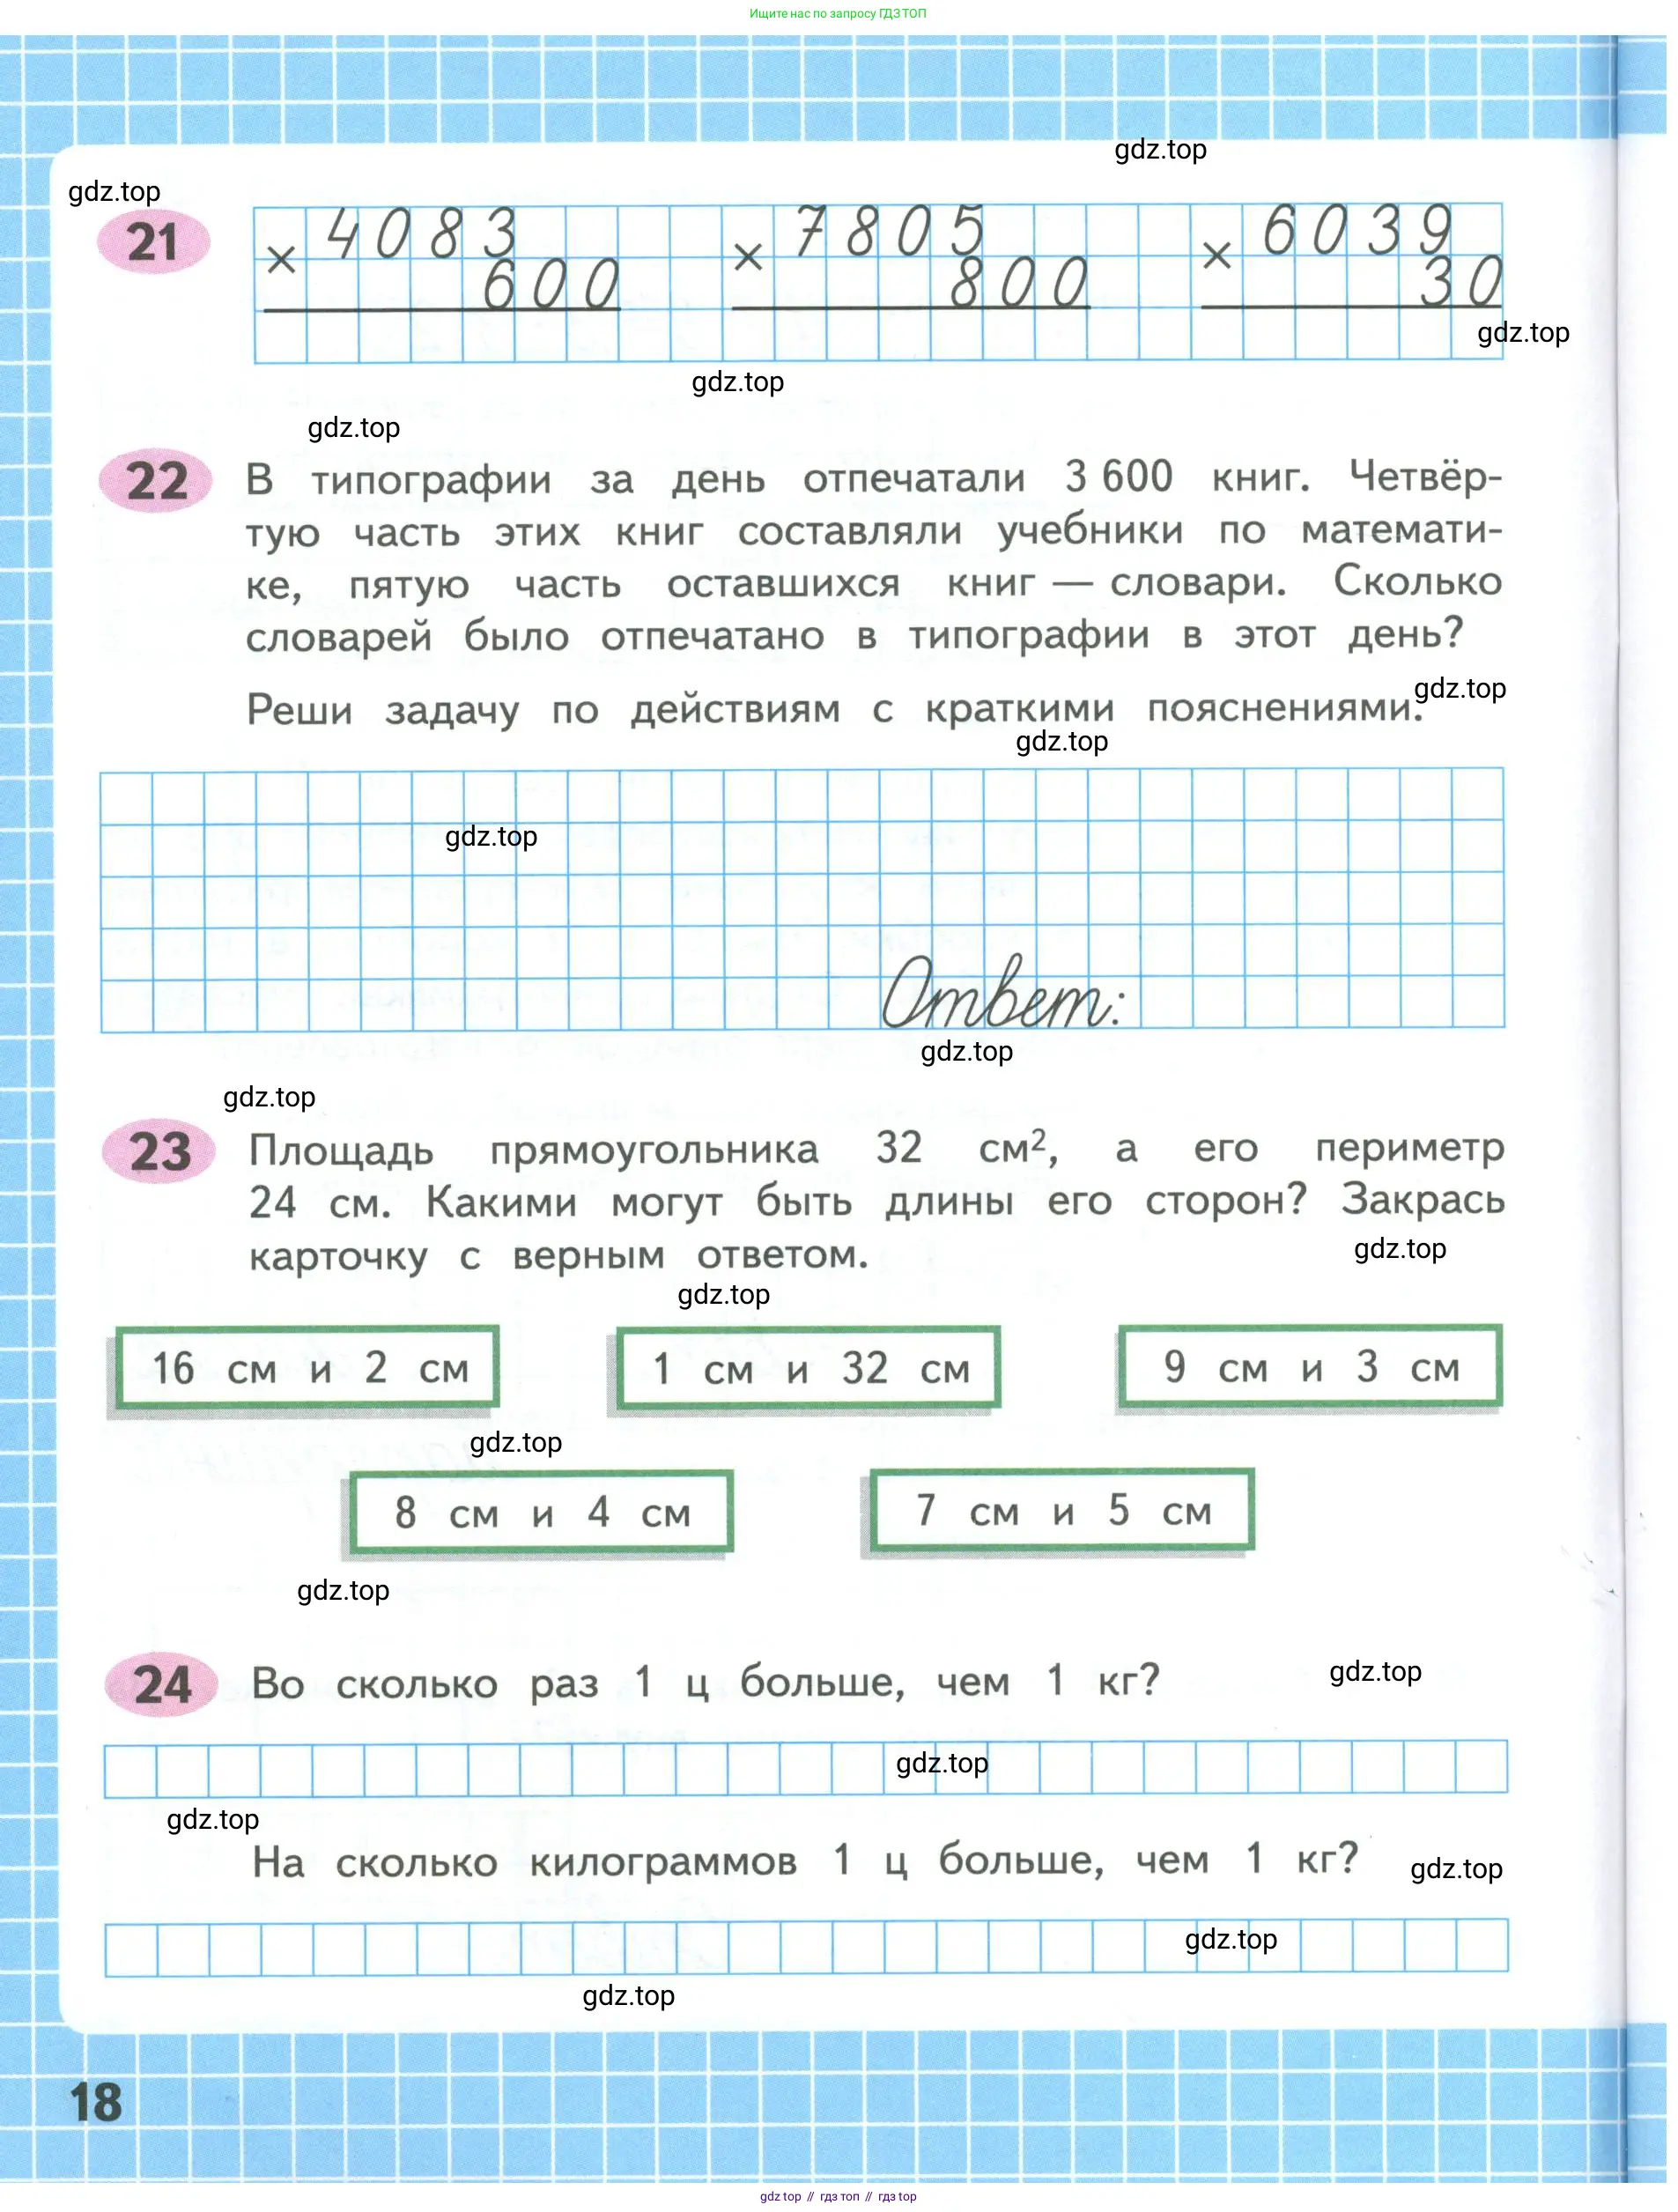 Ищите нас по запросу ГДЗ ТОП
gdz.top
gdz.top
21
× 4083 × 7805 × 6039
600 800 30
gdz.top
gdz.top
gdz.top
22 В типографии за день отпечатали 3 600 книг. Четвёр-
тую часть этих книг составляли учебники по математи-
ке, пятую часть оставшихся книг — словари. Сколько
словарей было отпечатано в типографии в этот день?
gdz.top
Реши задачу по действиям с краткими пояснениями.
gdz.top
gdz.top
Ответ:
gdz.top
gdz.top
23 Площадь прямоугольника 32 см², а его периметр
24 см. Какими могут быть длины его сторон? Закрась
карточку с верным ответом.
gdz.top
gdz.top
16 см и 2 см 1 см и 32 см 9 см и 3 см
gdz.top
8 см и 4 см 7 см и 5 см
gdz.top
24 Во сколько раз 1 ц больше, чем 1 кг?
gdz.top
gdz.top
gdz.top
На сколько килограммов 1 ц больше, чем 1 кг?
gdz.top
gdz.top
gdz.top
18
gdz top // гдз топ // гдз top